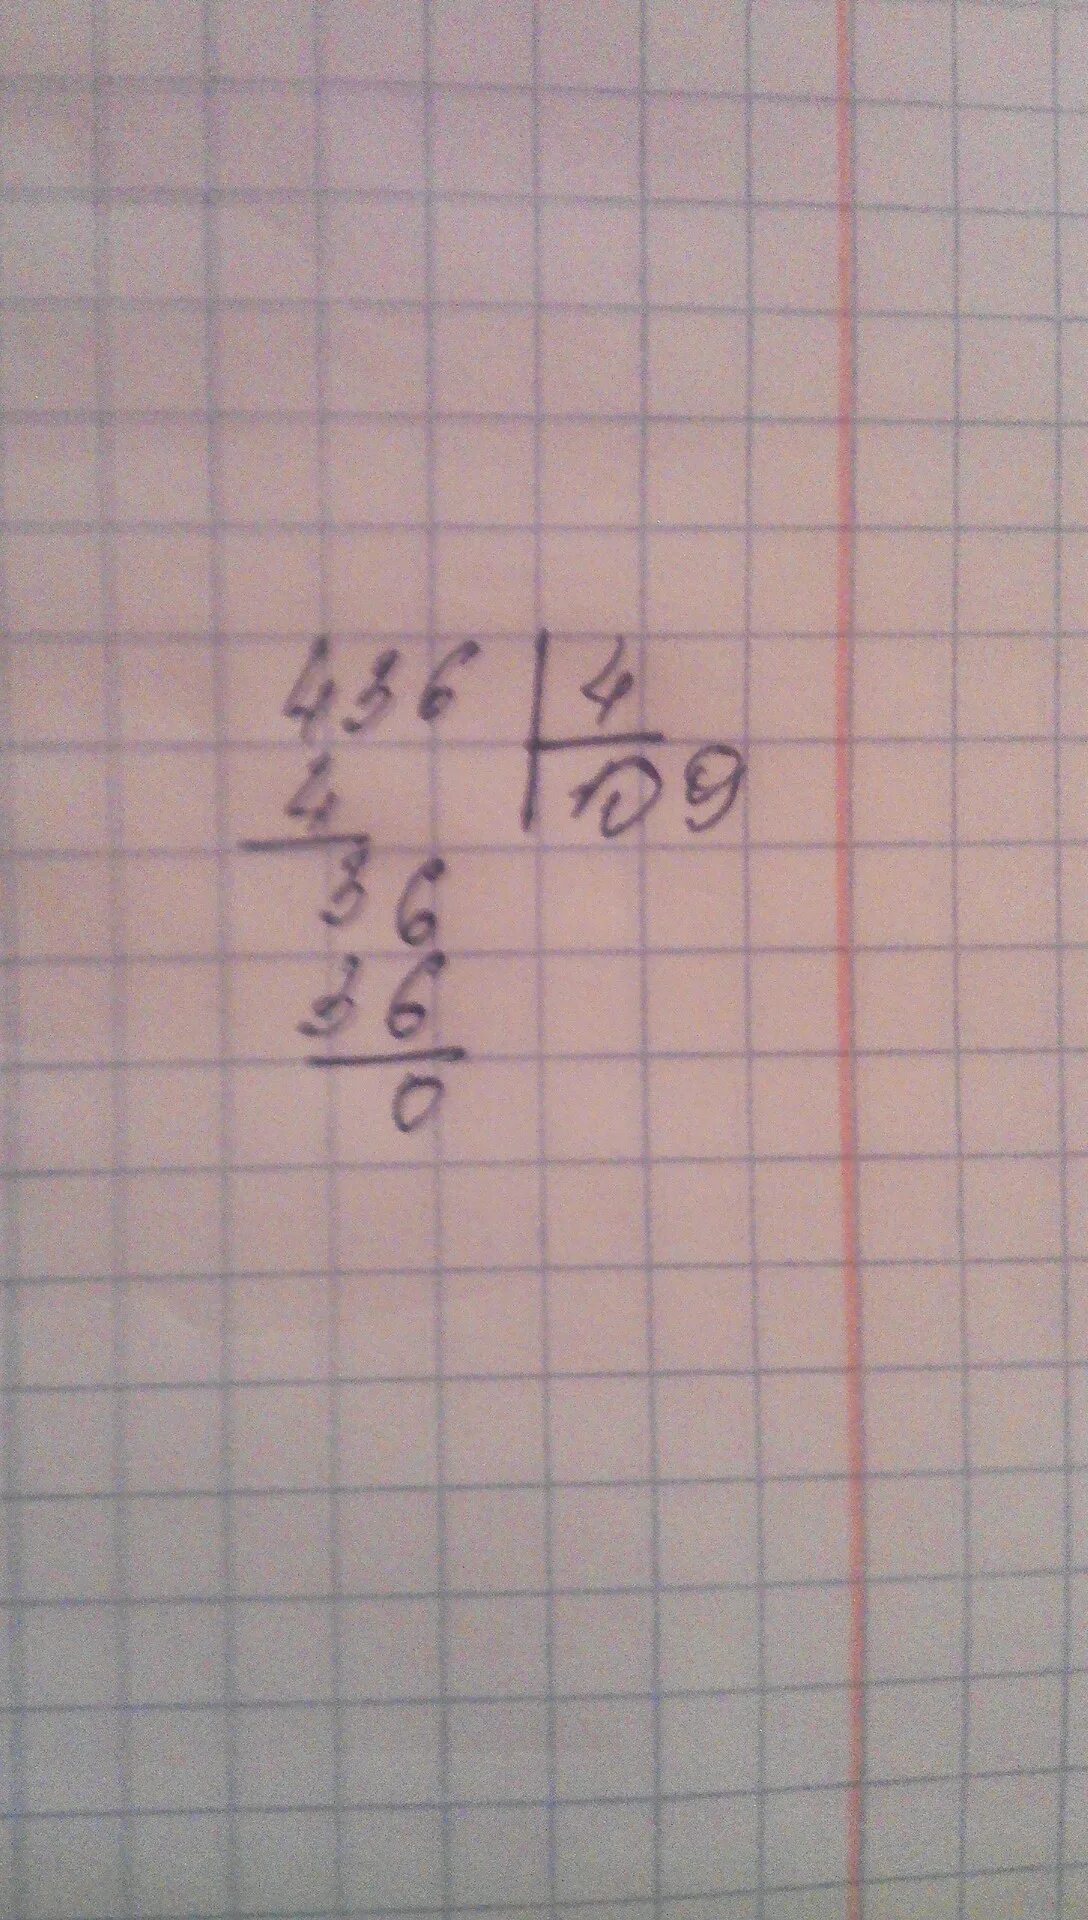 436 | 4
4 109
36
36
0